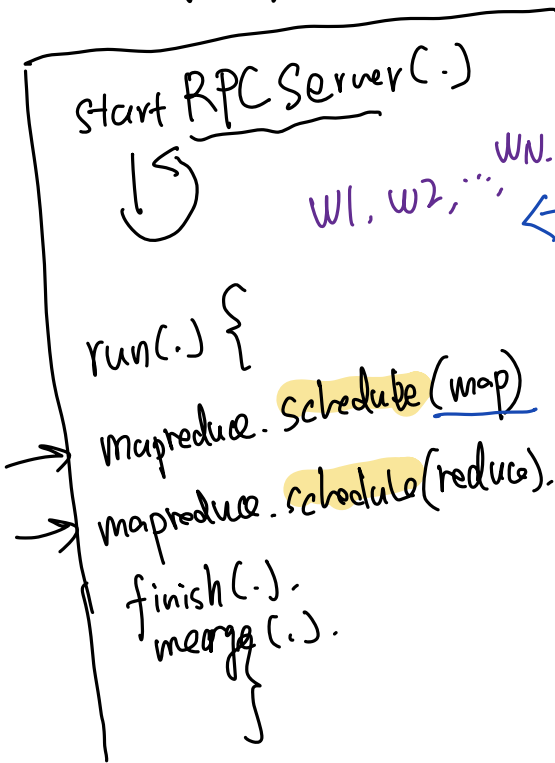 start RPC Server(.)
W1, W2, ..., WN.
run(.) {
mapreduce. schedule (map)
mapreduce. schedule (reduce).
finish(.).
merge(.).
}